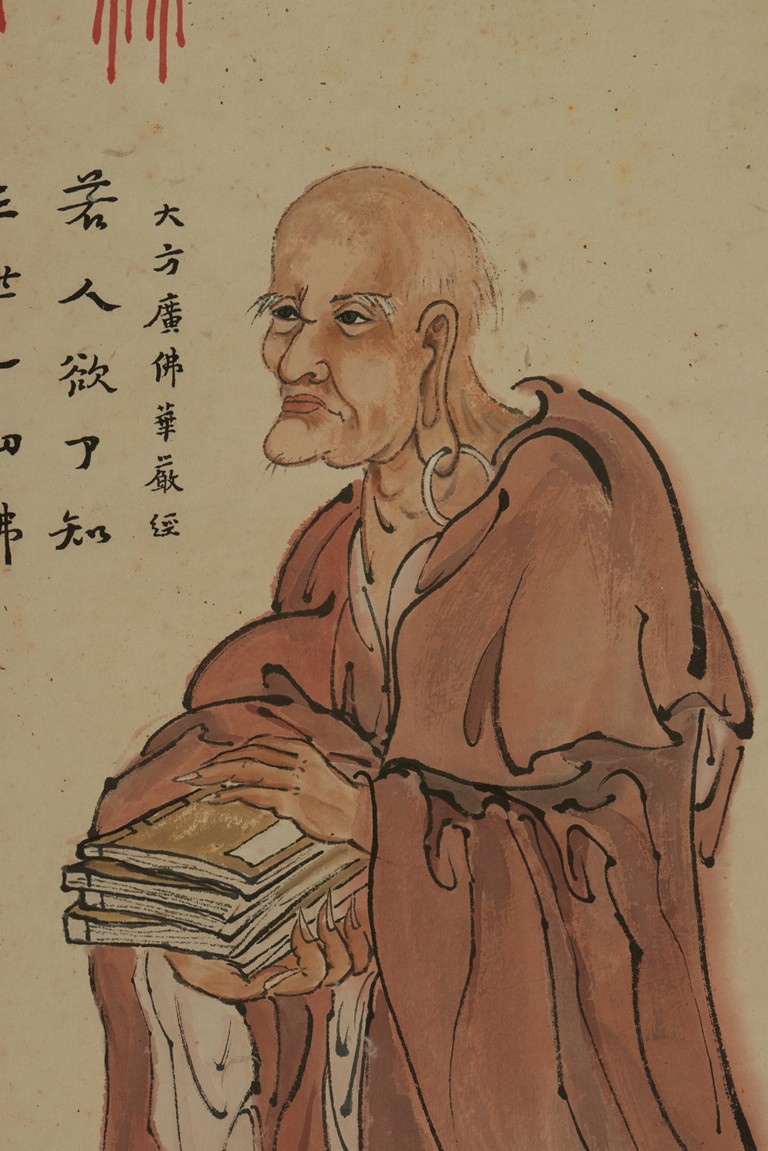 大方廣佛華嚴經
若人欲了知
三世一切佛